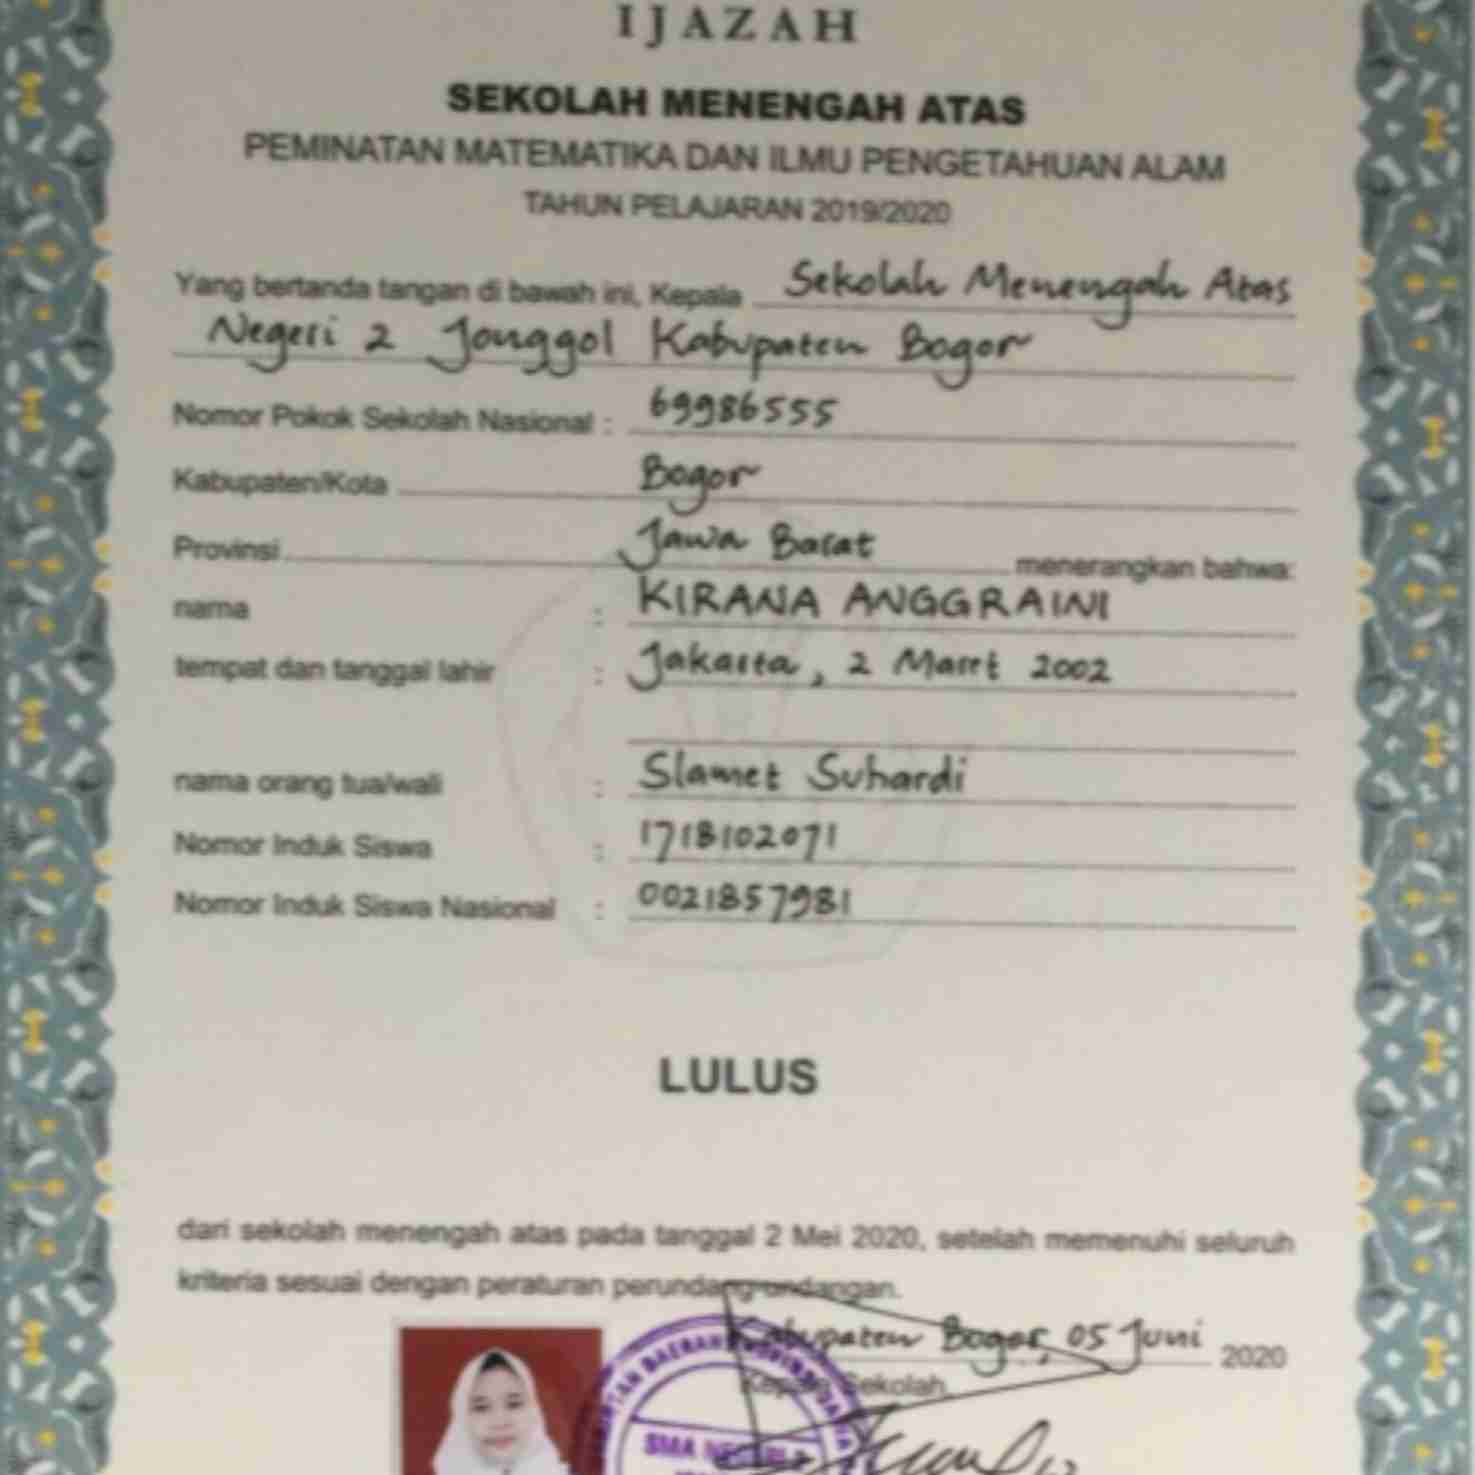 IJAZAH
SEKOLAH MENENGAH ATAS
PEMINATAN MATEMATIKA DAN ILMU PENGETAHUAN ALAM
TAHUN PELAJARAN 2019/2020
Yang bertanda tangan di bawah ini, Kepala Sekolah Menengah Atas
Negeri 2 Jonggol Kabupaten Bogor
Nomor Pokok Sekolah Nasional : 69986555
Kabupaten/Kota Bogor
Provinsi Jawa Barat menerangkan bahwa:
nama : KIRANA ANGGRAINI
tempat dan tanggal lahir : Jakarta, 2 Maret 2002
nama orang tua/wali : Slamet Suhardi
Nomor Induk Siswa : 1718102071
Nomor Induk Siswa Nasional : 0021857981
LULUS
dari sekolah menengah atas pada tanggal 2 Mei 2020, setelah memenuhi seluruh
kriteria sesuai dengan peraturan perundang-undangan.
Kabupaten Bogor, 05 Juni 2020
Kepala Sekolah
DAERAH
SMA NEGERI 2